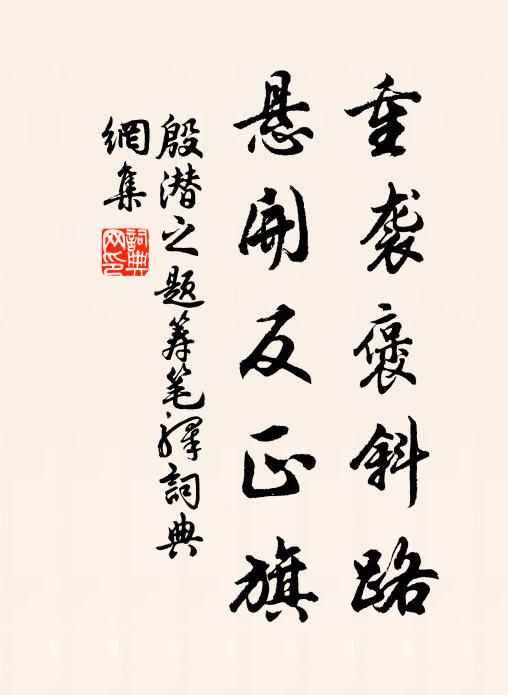 重袭褒斜路
悬开反正旗
殷潜之题筹笔驿詞典
網集
詞典網印